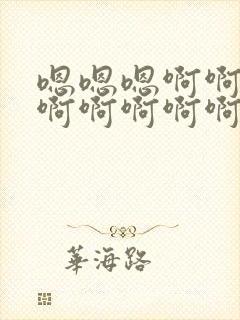 嗯嗯嗯啊啊
啊啊啊啊啊
華海路